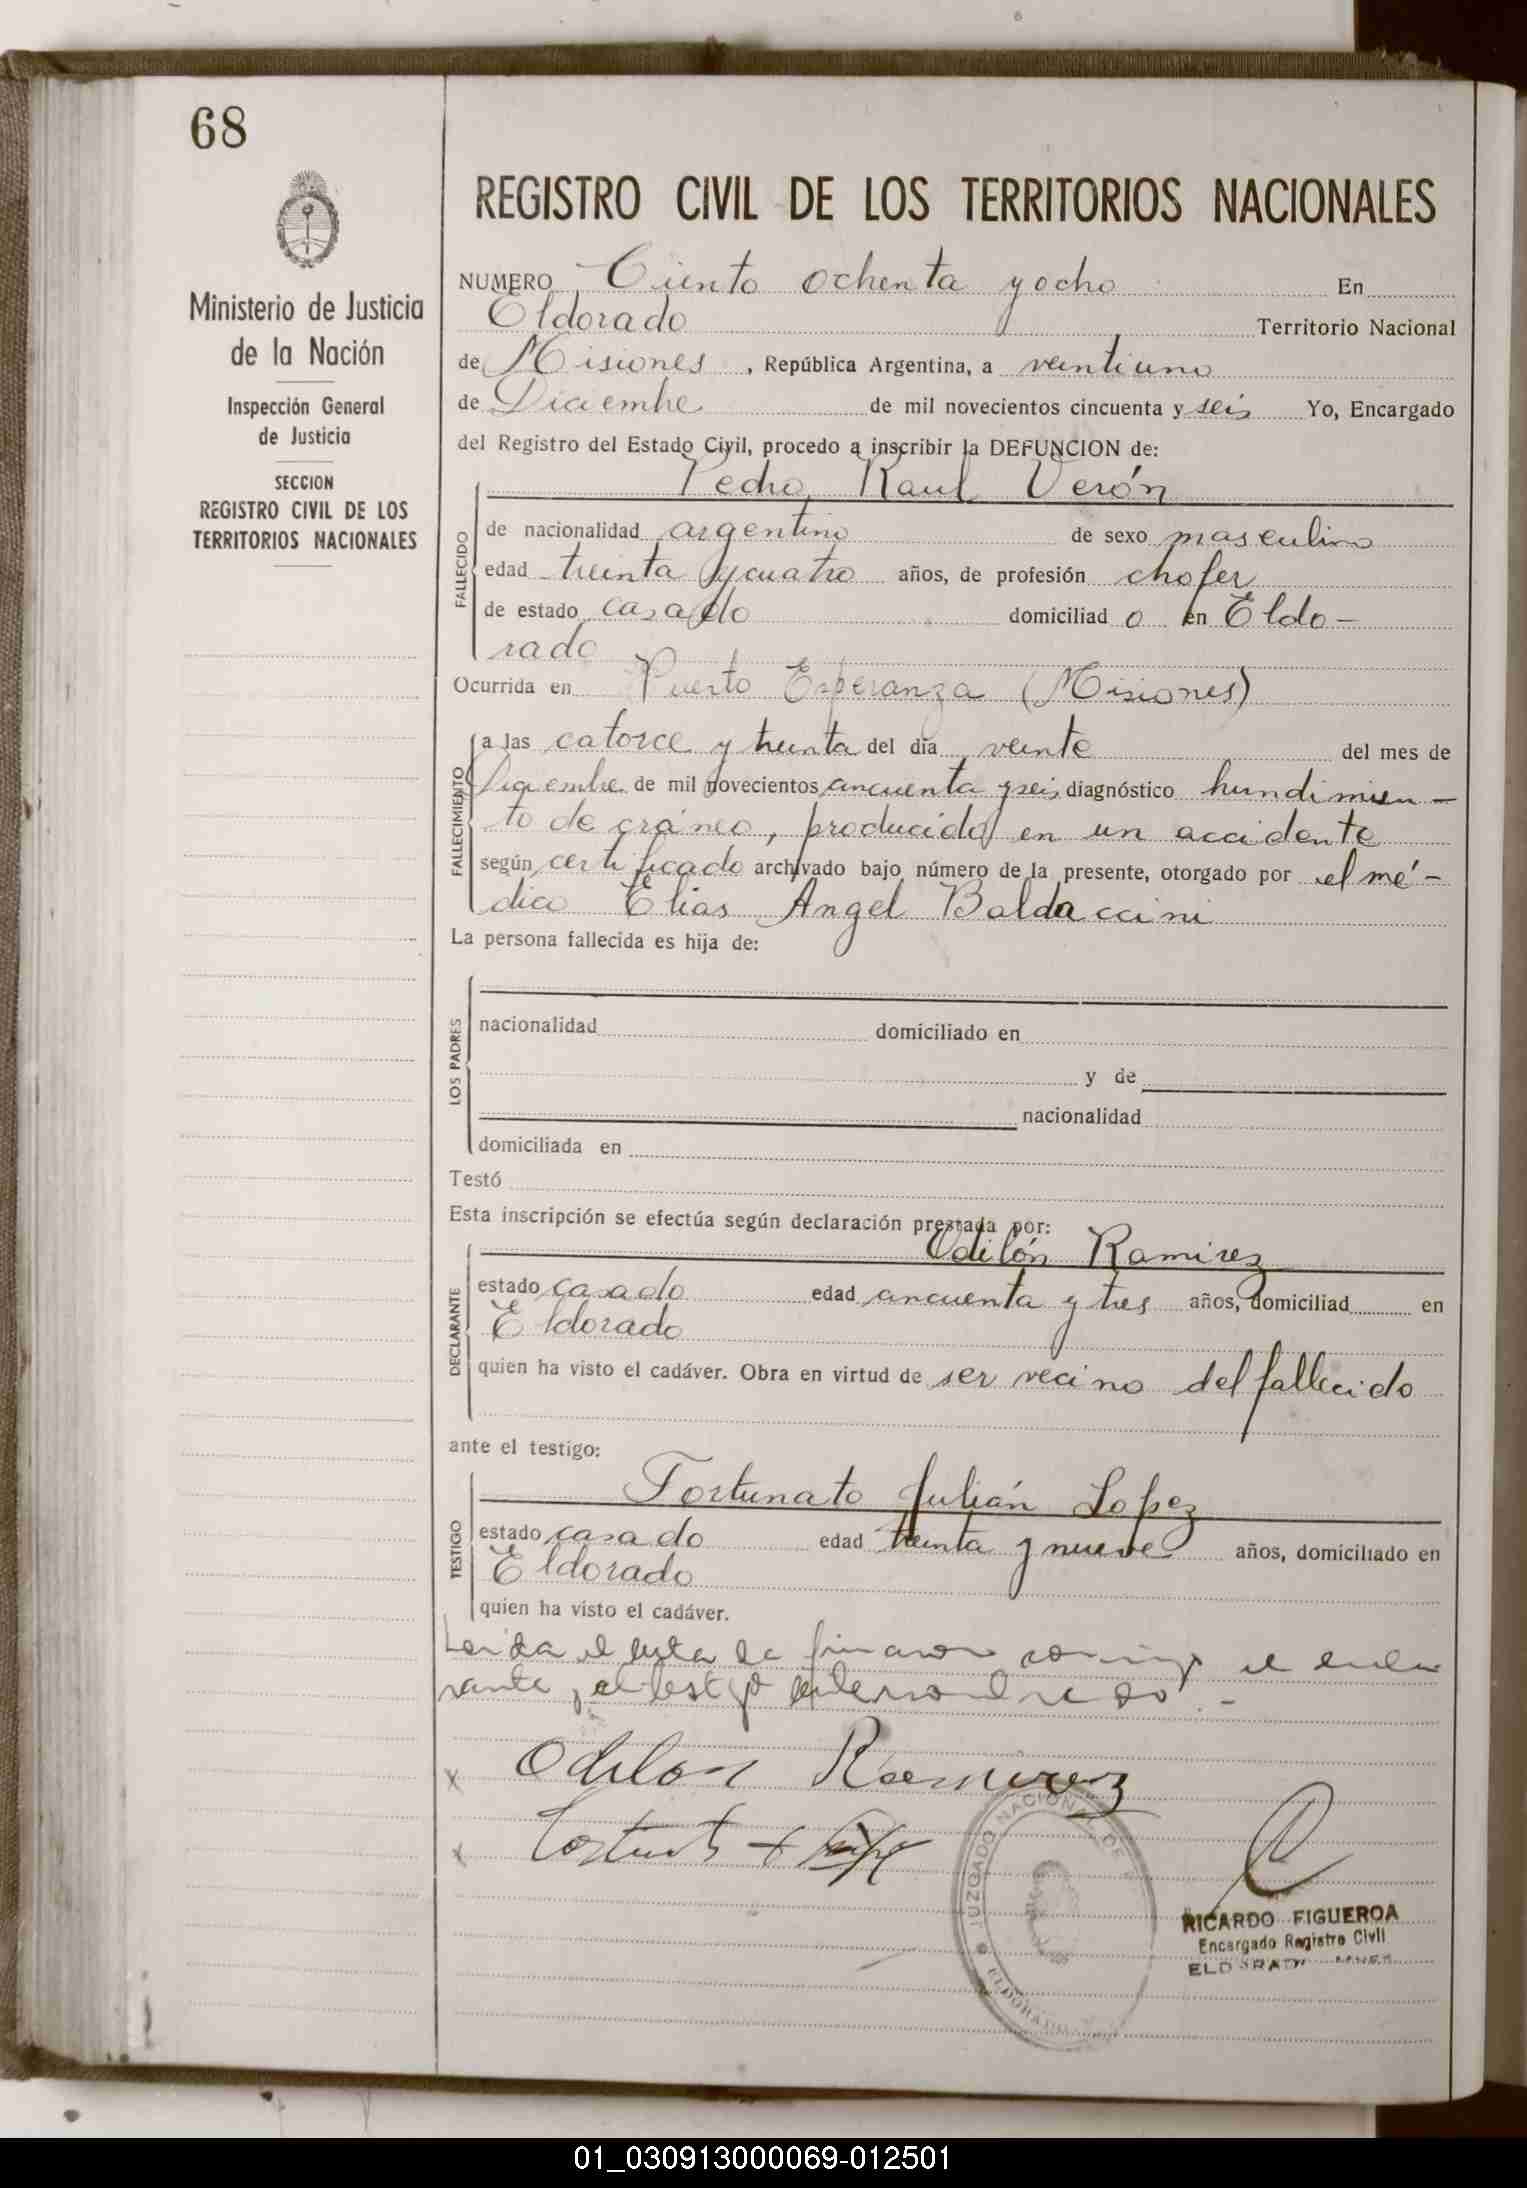 68
REGISTRO CIVIL DE LOS TERRITORIOS NACIONALES
Ministerio de Justicia
de la Nación
Inspección General
de Justicia
SECCION
REGISTRO CIVIL DE LOS
TERRITORIOS NACIONALES
NUMERO Ciento ochenta y ocho En
Eldorado Territorio Nacional
de Misiones, República Argentina, a veintiuno
de Diciembre de mil novecientos cincuenta y seis Yo, Encargado
del Registro del Estado Civil, procedo a inscribir la DEFUNCION de:
Pedro Raul Verón
FALLECIDO
de nacionalidad argentino de sexo masculino
edad treinta y cuatro años, de profesión chofer
de estado casado domiciliad o en Eldo-
rado
Ocurrida en Puerto Esperanza (Misiones)
FALLECIMIENTO
a las catorce y treinta del día veinte del mes de
Diciembre de mil novecientos cincuenta y seis diagnóstico hundimien-
to de cráneo, producido en un accidente
según certificado archivado bajo número de la presente, otorgado por el mé-
dico Elias Angel Baldaccini
La persona fallecida es hija de:
LOS PADRES
nacionalidad domiciliado en
y de
nacionalidad
domiciliada en
Testó
Esta inscripción se efectúa según declaración prestada por:
Odilón Ramirez
DECLARANTE
estado casado edad cincuenta y tres años, domiciliad en
Eldorado
quien ha visto el cadáver. Obra en virtud de ser vecino del fallecido
ante el testigo:
Fortunato Julián Lopez
TESTIGO
estado casado edad treinta y nueve años, domiciliado en
Eldorado
quien ha visto el cadáver.
Leida el acta la firmaron conmigo el
y el testigo
x Odilon Ramirez
x
JUZGADO NACIONAL DE
ELDORADO
RICARDO FIGUEROA
Encargado Registro Civil
ELDORADO
01_030913000069-012501